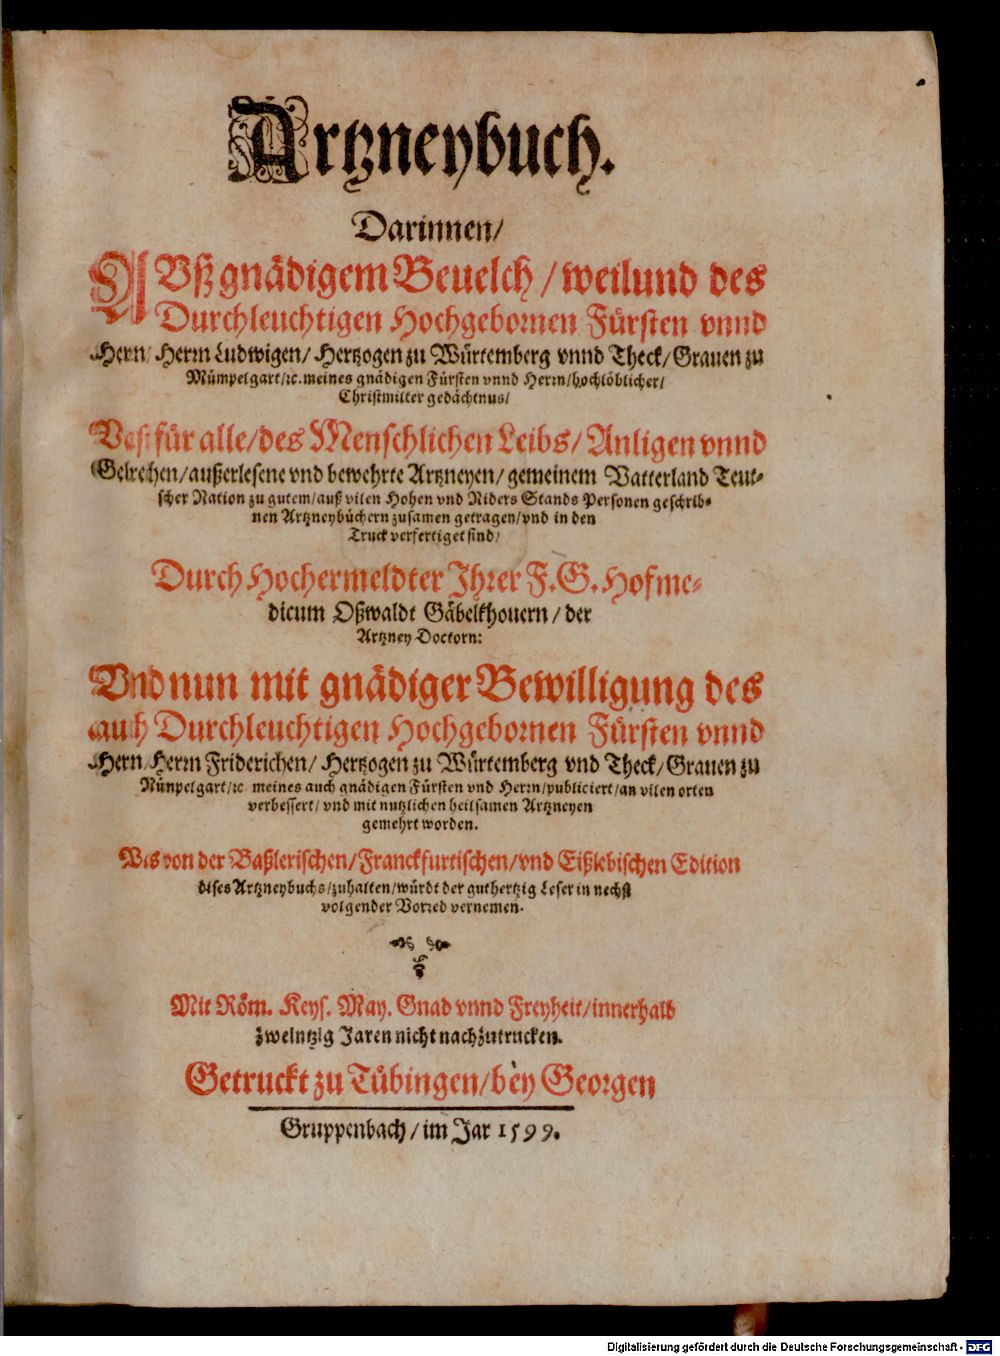 Artzneybuch.
Darinnen/
AVß gnädigem Beuelch/ weilund des
Durchleuchtigen Hochgebornen Fürsten vnnd
Hern/ Herrn Ludwigen/ Hertzogen zu Würtemberg vnnd Theck/ Grauen zu
Mümpelgart/ ꝛc. meines gnädigen Fürsten vnnd Herrn/ hochlöblicher/
Christmilter gedächtnus/
Vast für alle/ des Menschlichen Leibs/ Anligen vnnd
Gebrechen/ außerlesene vnd bewehrte Artzneyen/ gemeinem Vatterland Teut-
scher Nation zu gutem/ auß vilen Hohen vnd Niders Stands Personen geschrib-
nen Artzneybüchern zusamen getragen/ vnd in den
Truck verfertiget sind/
Durch Hochermeldter Ihrer F. G. Hofme-
dicum Oßwaldt Gäbelkhouern/ der
Artzney Doctorn:
Vnd nun mit gnädiger Bewilligung des
auch Durchleuchtigen Hochgebornen Fürsten vnnd
Hern/ Herrn Friderichen/ Hertzogen zu Würtemberg vnd Theck/ Grauen zu
Münpelgart/ ꝛc meines auch gnädigen Fürsten vnd Herrn/ publiciert/ an vilen orten
verbessert/ vnd mit nutzlichen heilsamen Artzneyen
gemehrt worden.
Was von der Baßlerischen/ Franckfurtischen/ vnd Eißlebischen Edition
dises Artzneybuchs/ zuhalten/ würdt der guthertzig Leser in nechst
volgender Vorred vernemen.
Mit Röm. Keys. May. Gnad vnnd Freyheit/ innerhalb
zweintzig Jaren nicht nachzutrucken.
Getruckt zu Tübingen/ bey Georgen
Gruppenbach/ im Jar 1599.
Digitalisierung gefördert durch die Deutsche Forschungsgemeinschaft - DFG